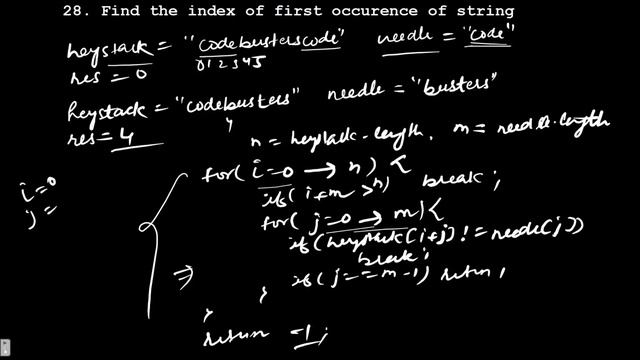 28. Find the index of first occurence of string
heystack = "codebusterscode" needle = "code"
012345
res = 0
heystack = "codebusters" needle = "busters"
4
res = 4
n = heystack.length, m = needle.length
for( i=0 → n) {
if( i+m > n) break;
i=0
j =
for( j=0 → m) {
if(heystack(i+j) != needle(j))
break;
⇒ if(j == m-1) return i
}
}
return -1;